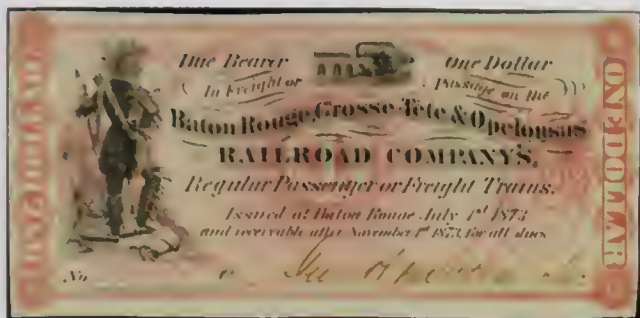 Due Bearer One Dollar
In Freight or Passage on the
Baton Rouge, Grosse-Tête & Opelousas
RAILROAD COMPANY'S,
Regular Passenger or Freight Trains.
Issued at Baton Rouge July 1st 1873
and receivable after November 1st 1873, for all dues
No
ONE DOLLAR
ONE DOLLAR